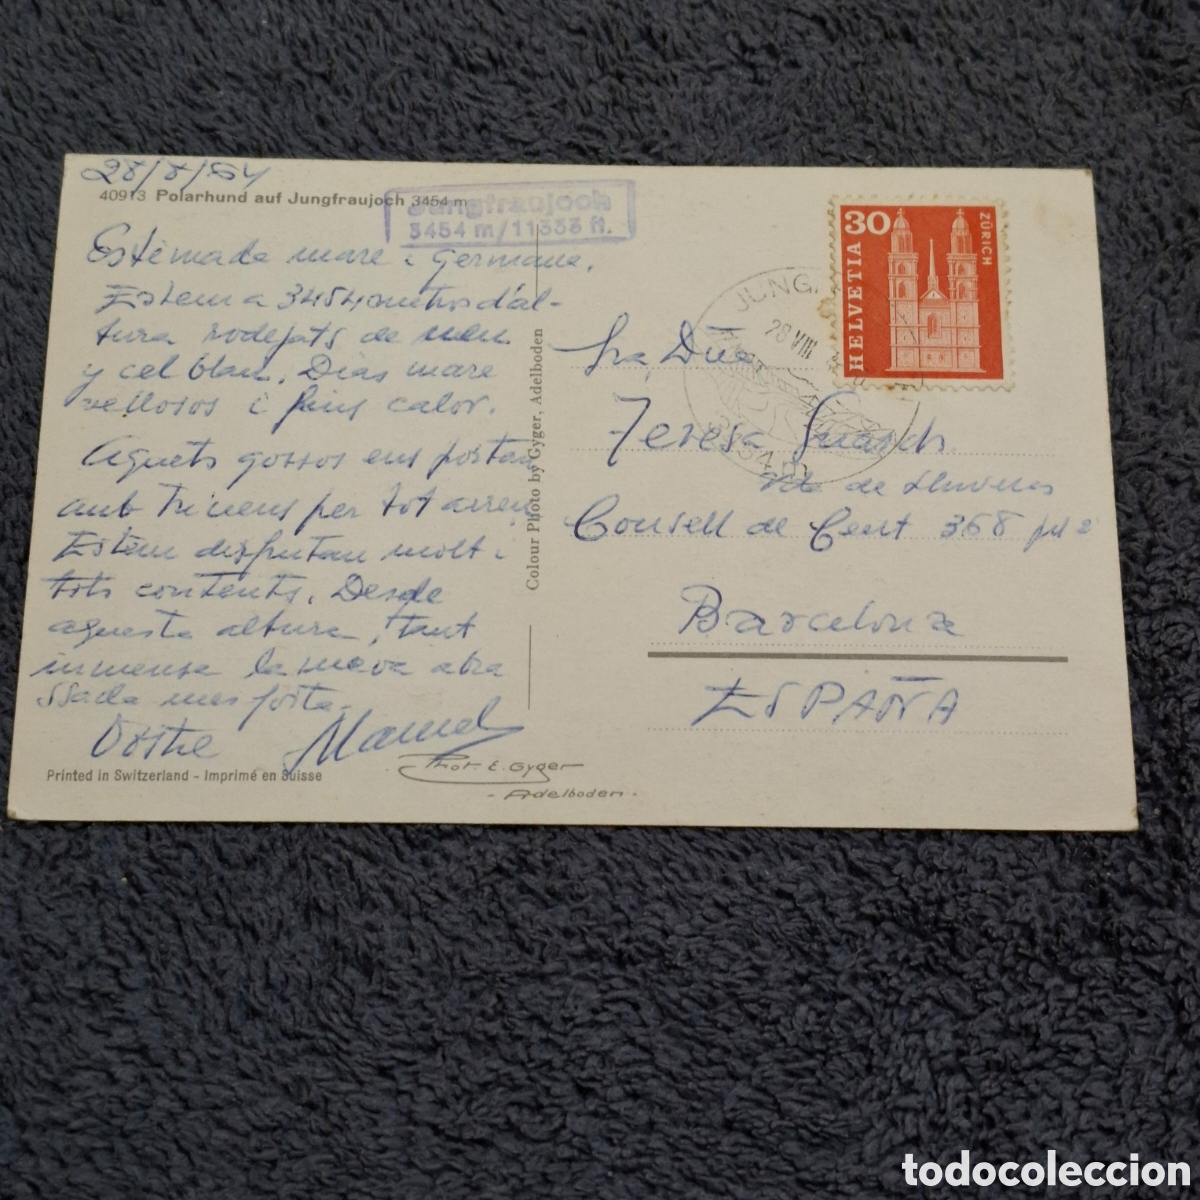 28/8/64
40913 Polarhund auf Jungfraujoch 3454 m
Jungfraujoch
3454 m/11333 ft.
Estimada mare i germana.
Estem a 3454 metros d'al-
tura rodejats de neu
y cel blau. Dias mara
vellosos i fins calor.
Aquets gossos ens portan
amb trineus per tot arreu
Estèm disfrutan molt i
tots contents. Desde
aquesta altura, tant
inmensa la meva abra
ssada mes forta.
Vostre Manuel
Printed in Switzerland - Imprimé en Suisse
Phot. E. Gyger
- Adelboden -
Colour Photo by Gyger, Adelboden
30
HELVETIA
ZÜRICH
28 VIII
3454 m
Sra. Dña
Teresa Guasch
Vda de
Consell de Cent 368
Barcelona
ESPAÑA
todocoleccion